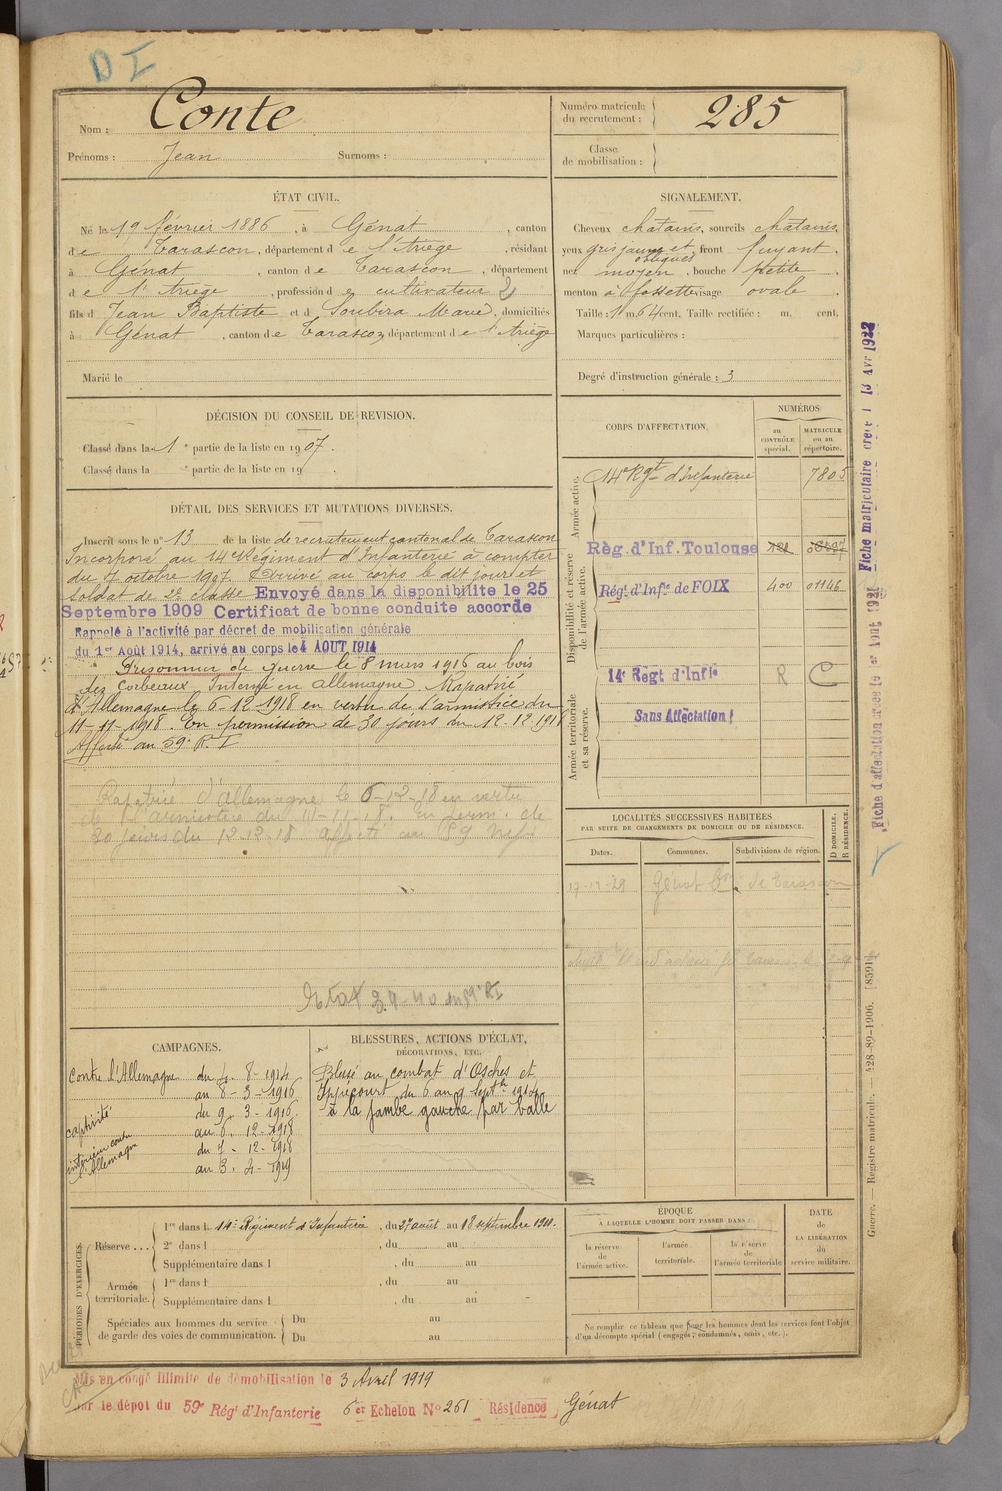 D I
Nom : Conte
Prénoms : Jean Surnoms :
Numéro matricule du recrutement : 285
Classe de mobilisation :
ÉTAT CIVIL.
Né le 19 février 1886, à Génat, canton
de Tarascon, département de l'Ariège, résidant
à Génat, canton de Tarascon, département
de l'Ariège, profession de cultivateur
fils d Jean Baptiste et d Soubira Marie, domiciliés
à Génat, canton de Tarascon, département de l'Ariège
Marié le
SIGNALEMENT.
Cheveux chatains, sourcils chatains,
yeux gris jaune et obliques, front fuyant,
nez moyen, bouche petite,
menton à fossette visage ovale.
Taille : 1 m. 64 cent. Taille rectifiée : m. cent.
Marques particulières :
Degré d'instruction générale : 3
DÉCISION DU CONSEIL DE REVISION.
Classé dans la 1e partie de la liste en 1907.
Classé dans la e partie de la liste en 19 .
DÉTAIL DES SERVICES ET MUTATIONS DIVERSES.
Inscrit sous le n° 13 de la liste de recrutement cantonal de Tarascon
Incorporé au 14e Régiment d'Infanterie à compter
du 7 octobre 1907. Arrivé au corps le dit jour et
soldat de 2e classe Envoyé dans la disponibilité le 25
Septembre 1909 Certificat de bonne conduite accordé
Rappelé à l'activité par décret de mobilisation générale
du 1er Août 1914, arrivé au corps le 4 AOUT 1914
Prisonnier de guerre le 8 mars 1916 au bois
des Corbeaux Interné en Allemagne. Rapatrié
d'Allemagne le 6-12-1918 en vertu de l'armistice du
11-11-1918. En permission de 30 jours du 12.12.1918
Affecté au 59e R.I.
Rapatrié d'Allemagne le 6-12-18 en vertu
de l'armistice du 11-11-18. en perm. de
30 jours du 12-12-18 affecté au 59
39-40 au 59e RI
CORPS D'AFFECTATION.
NUMÉROS
au CONTRÔLE spécial.
MATRICULE ou au répertoire.
Armée active.
14e Rgt d'Infanterie 7805
Disponibilité et réserve de l'armée active.
Règ. d'Inf. Toulouse
Rég. d'Infie de FOIX 400 01146
14e Régt d'Infie R C
Armée territoriale et sa réserve.
Sans Affectation !
LOCALITÉS SUCCESSIVES HABITÉES
PAR SUITE DE CHANGEMENTS DE DOMICILE OU DE RÉSIDENCE.
Dates. Communes. Subdivisions de région. D DOMICILE. R RÉSIDENCE.
Génat Con de Tarascon
CAMPAGNES.
Contre l'Allemagne du 4. 8- 1914
au 8- 3- 1916
captivité du 9. 3- 1916.
au 6. 12- 1918
intérieur contre l'Allemagne du 7- 12- 1918
au 3. 4- 1919
BLESSURES, ACTIONS D'ÉCLAT,
DÉCORATIONS, ETC.
Blessé au combat d'Osches et
Ippécourt du 6 au 9 Septbre 1914
à la jambe gauche par balle
PÉRIODES D'EXERCICES.
Réserve ... 1re dans l. 14e Régiment d'Infanterie, du 27 août au 18 septembre 1911.
2e dans l , du au
Supplémentaire dans l , du au
Armée territoriale. 1re dans l , du au
Supplémentaire dans l , du au
Spéciales aux hommes du service de garde des voies de communication. Du au
Du au
ÉPOQUE
A LAQUELLE L'HOMME DOIT PASSER DANS :
la réserve de l'armée active.
l'armée territoriale.
la réserve de l'armée territoriale
DATE de LA LIBÉRATION du service militaire.
Ne remplir ce tableau que pour les hommes dont les services font l'objet
d'un décompte spécial (engagés, condamnés, omis, etc.).
Mis en congé illimité de démobilisation le 3 Avril 1919
par le dépôt du 59e Régt d'Infanterie 6er Echelon N° 261 Résidence Génat
Fiche matriculaire créée l 13 Avr 1922
Fiche d'affectation créée le 1er Août 1921
Guerre. — Registre matricule. — 428-89-1906. [8591]